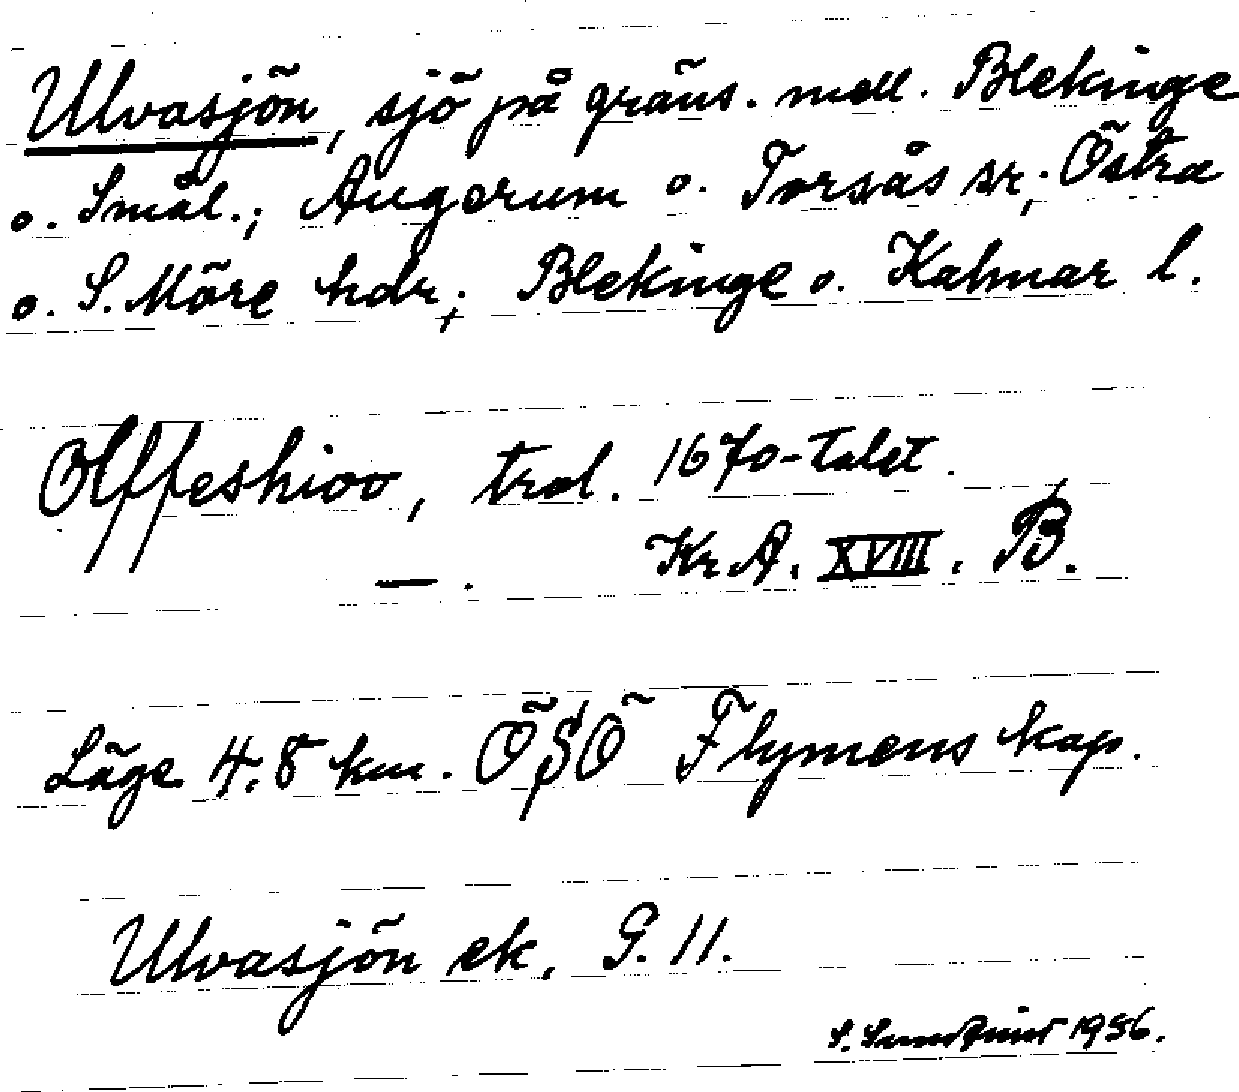 Ulvasjön, sjö på gräns. mell. Blekinge
o. Smål.; Augerum o. Torsås sr; Östra
o. S. Möre hdr; Blekinge o. Kalmar l.
Olffeshioo, trol. 1670-talet.
—. Kr.A. XVIII. B.
Läge 4.8 km. ÖSÖ Flymens kap.
Ulvasjön ek. G. 11.
S. 1956.